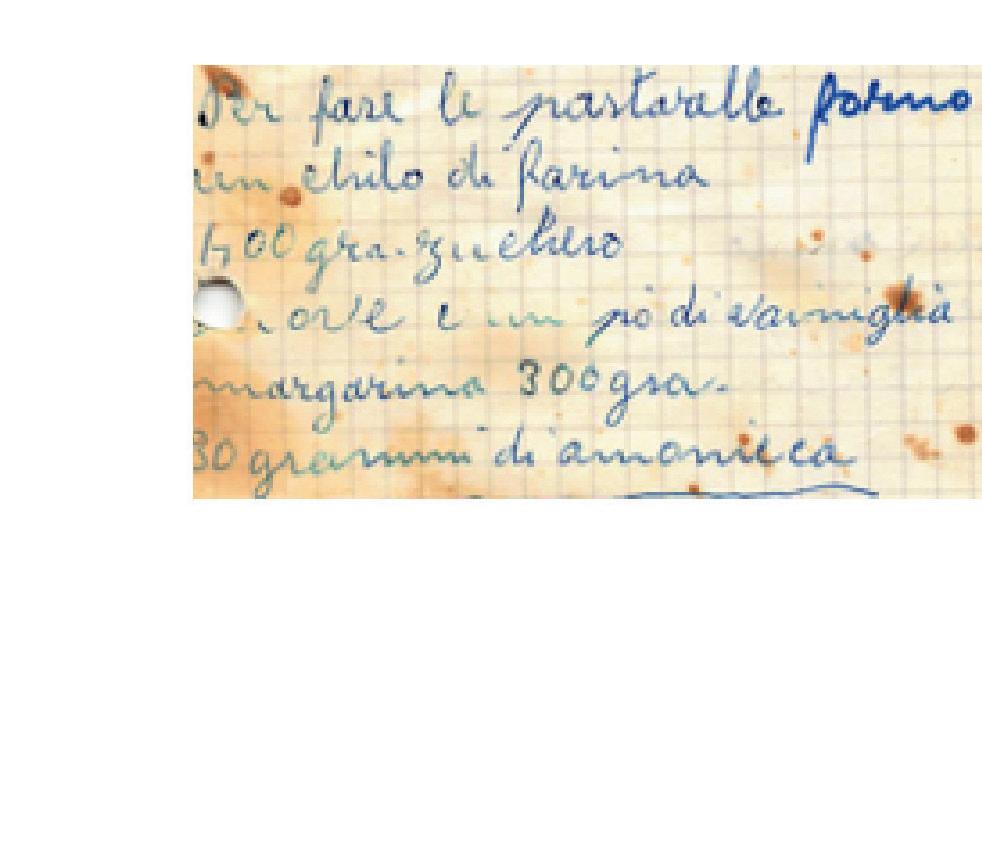 Per fare le pastaralle forno
un chilo di farina
400 gra. zuchero
ove e un pò di vainiglia
margarina 300 gra.
30 grammi di amonieca